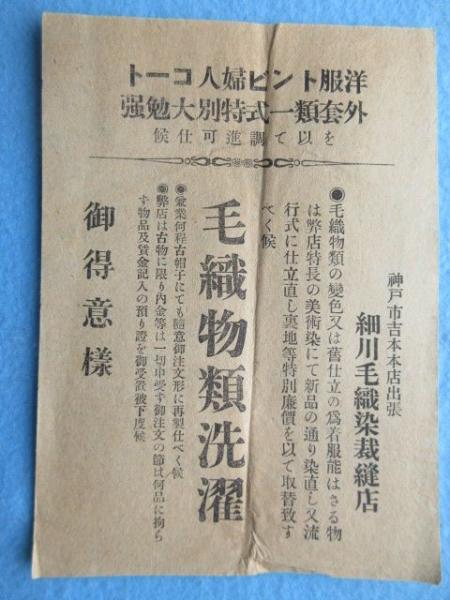 洋服トンビ婦人コート
外套類一式特別大勉强
を以て調進可仕候
神戸市吉本本店出張
細川毛織染裁縫店
●毛織物類の變色又は舊仕立の爲着服能はさる物
は弊店特長の美術染にて新品の通り染直し又流
行式に仕立直し裏地等特別廉價を以て取替致す
べく候
毛織物類洗濯
●兼業何程古帽子にても隨意御注文形に再製仕べく候
●弊店は古物に限り内金等は一切申受す御注文の節は何品に拘ら
す物品及賃金記入の預り證を御受置被下度候
御得意樣